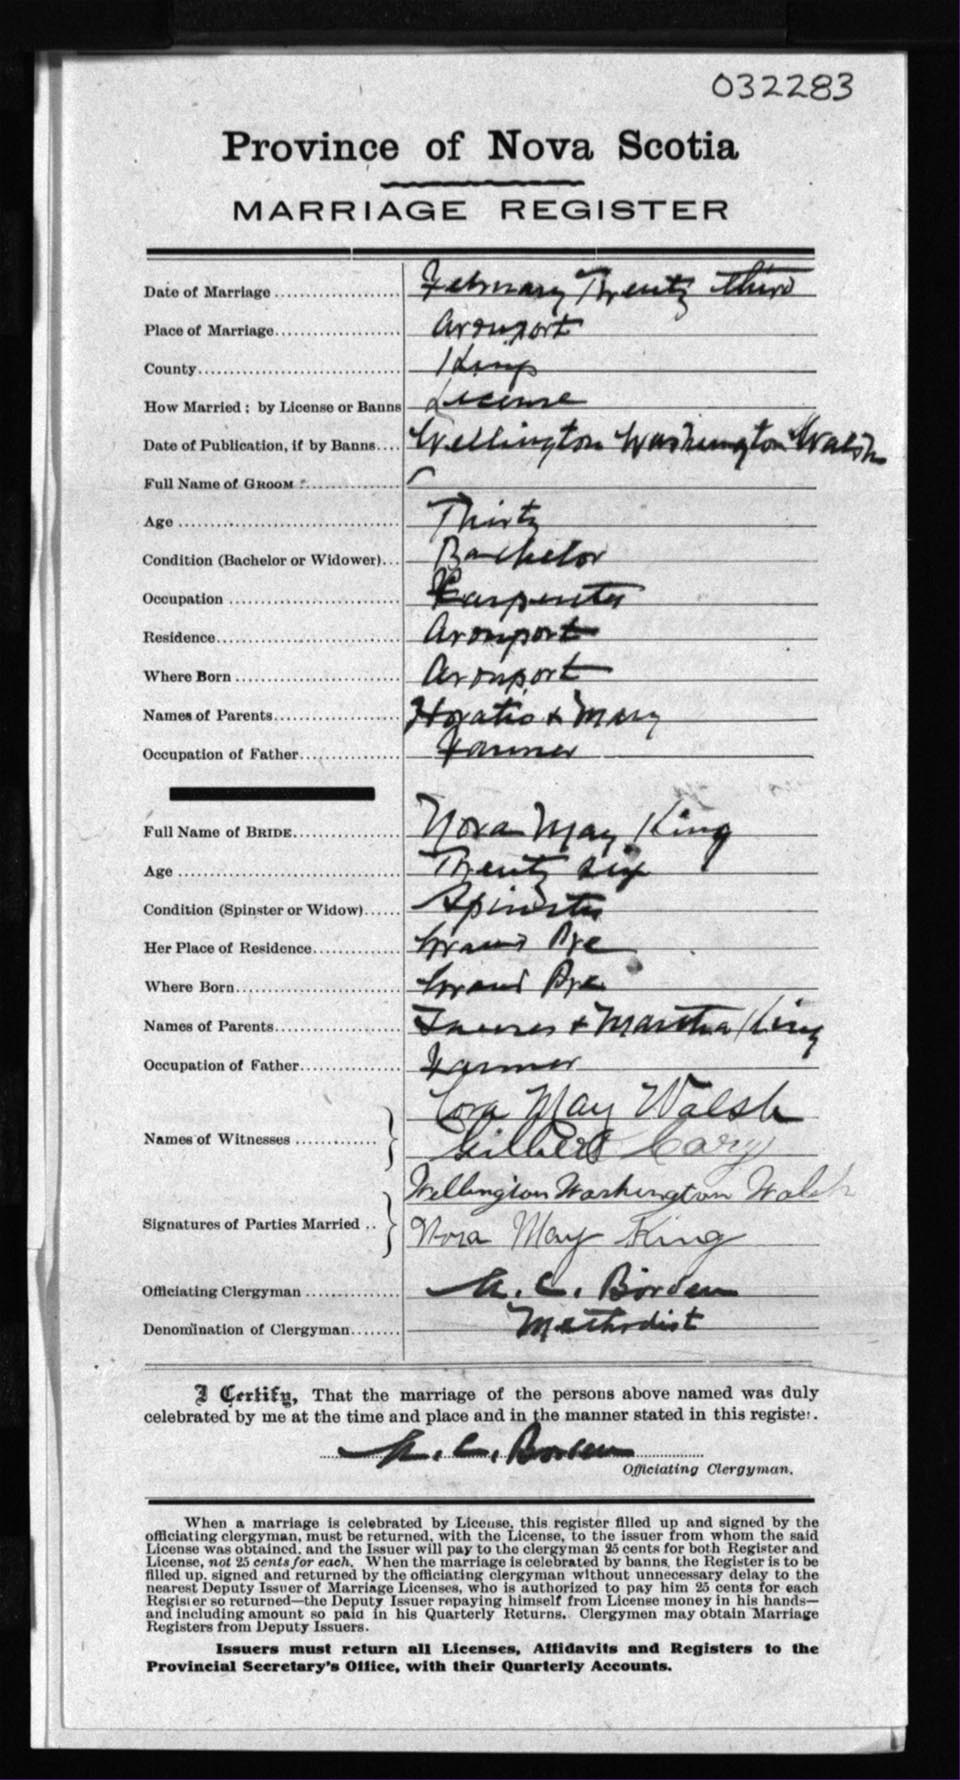 032283
Province of Nova Scotia
MARRIAGE REGISTER
Date of Marriage .................... February Twenty third
Place of Marriage.................... Avonport
County.............................. Kings
How Married; by License or Banns License
Date of Publication, if by Banns.... Wellington Washington Walsh
Full Name of GROOM :..............
Age ................................. Thirty
Condition (Bachelor or Widower)... Bachelor
Occupation .......................... Carpenter
Residence............................ Avonport
Where Born ......................... Avonport
Names of Parents................... Horatio & Mary
Occupation of Father................ Farmer
Full Name of BRIDE................ Nora May King
Age ................................. Twenty six
Condition (Spinster or Widow)...... Spinster
Her Place of Residence.............. Grand Pre
Where Born......................... Grand Pre
Names of Parents................... & Martha King
Occupation of Father................ Farmer
Cora May Walsh
Names of Witnesses .............
Gilbert
Wellington Washington Walsh
Signatures of Parties Married ..
Nora May King
Officiating Clergyman .............. A. C. Borden
Denomination of Clergyman........ Methodist
I Certify, That the marriage of the persons above named was duly
celebrated by me at the time and place and in the manner stated in this register.
A. C. Borden
Officiating Clergyman.
When a marriage is celebrated by License, this register filled up and signed by the
officiating clergyman, must be returned, with the License, to the issuer from whom the said
License was obtained, and the Issuer will pay to the clergyman 25 cents for both Register and
License, not 25 cents for each. When the marriage is celebrated by banns, the Register is to be
filled up, signed and returned by the officiating clergyman without unnecessary delay to the
nearest Deputy Issuer of Marriage Licenses, who is authorized to pay him 25 cents for each
Register so returned—the Deputy Issuer repaying himself from License money in his hands—
and including amount so paid in his Quarterly Returns. Clergymen may obtain Marriage
Registers from Deputy Issuers.
Issuers must return all Licenses, Affidavits and Registers to the
Provincial Secretary's Office, with their Quarterly Accounts.